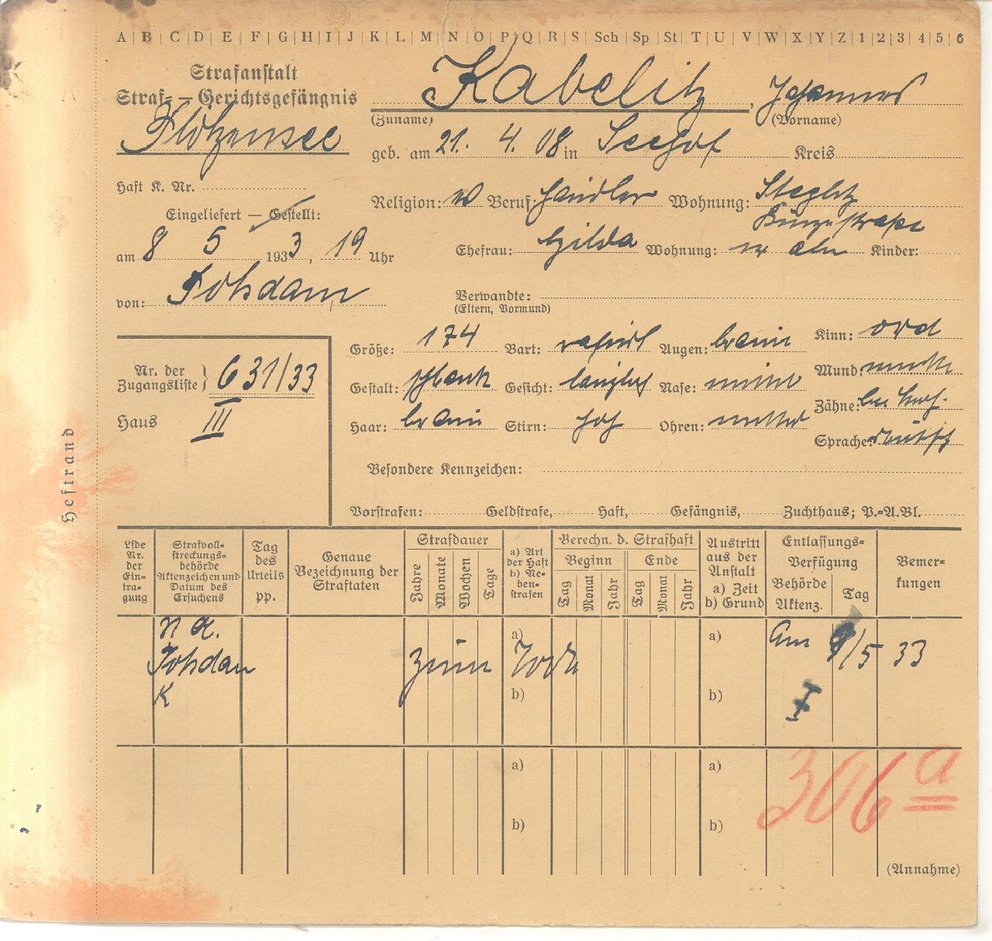 A | B | C | D | E | F | G | H | I | J | K | L | M | N | O | P | Q | R | S | Sch | Sp | St | T | U | V | W | X | Y | Z | 1 | 2 | 3 | 4 | 5 | 6
Strafanstalt
Straf- — Gerichtsgefängnis
Plötzensee
Kabelitz, Johannes
(Zuname) (Vorname)
geb. am 21. 4. 08 in Seehof Kreis
Haft K. Nr.
Religion: Beruf: Händler Wohnung: Steglitz
Eingeliefert — Gestellt:
am 8 5 1933, 19 Uhr
Ehefrau: Gilda Wohnung: Kinder:
von: Potsdam
Verwandte:
(Eltern, Vormund)
Größe: 174 Bart: rasiert Augen: braun Kinn: oval
Nr. der Zugangsliste } 631/33
Gestalt: schlank Gesicht: länglich Nase: Mund:
Zähne:
Haus III
Haar: braun Stirn: hoch Ohren: mittel Sprache: deutsch
Besondere Kennzeichen:
Vorstrafen: Geldstrafe, Haft, Gefängnis, Zuchthaus; P.=A.Bl.
Heftrand
Lfde Nr. der Ein-tragung
Strafvoll-streckungs-behörde Aktenzeichen und Datum des Ersuchens
Tag des Urteils pp.
Genaue Bezeichnung der Straftaten
Strafdauer
Jahre Monate Wochen Tage
a) Art der Haft b) Ne-ben-strafen
Berechn. d. Strafhaft
Beginn Ende
Tag Monat Jahr Tag Monat Jahr
Austritt aus der Anstalt a) Zeit b) Grund
Entlassungs-Verfügung
Behörde Aktenz. Tag
Bemer-kungen
a) a) Am 9/5 33
Potsdam zum Tode
K b) b)
a) a) 306 a
b) b)
(Annahme)